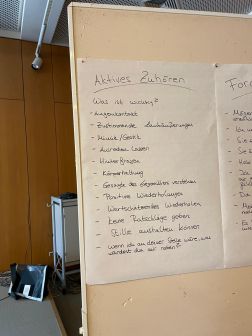 Aktives Zuhören
Was ist wichtig?
- Augenkontakt
- Zustimmende Lautäußerungen
- Mimik/Gestik
- Ausreden lassen
- Hinterfragen
- Körperhaltung
- Gesagte des Gegenübers verstehen
- Positive Wiederholungen
- Wertschätzendes Wiederholen
- keine Ratschläge geben
- Stille aushalten können
- wenn ich an deiner Stelle wäre, was
würdest du mir raten?
For
- Mögen
- Sie
- Sie
- Da